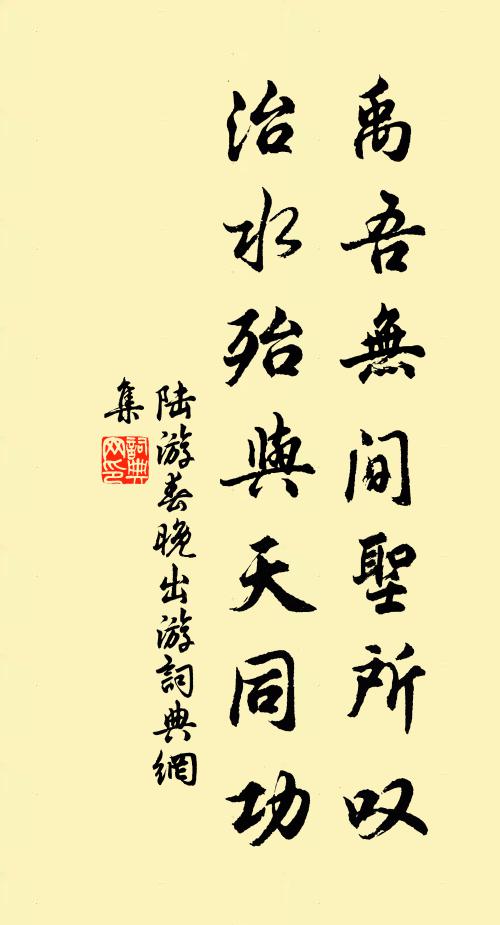 禹吾無间聖所叹
治水殆與天同功
陆游春晚出游詞典網
集
詞典网印